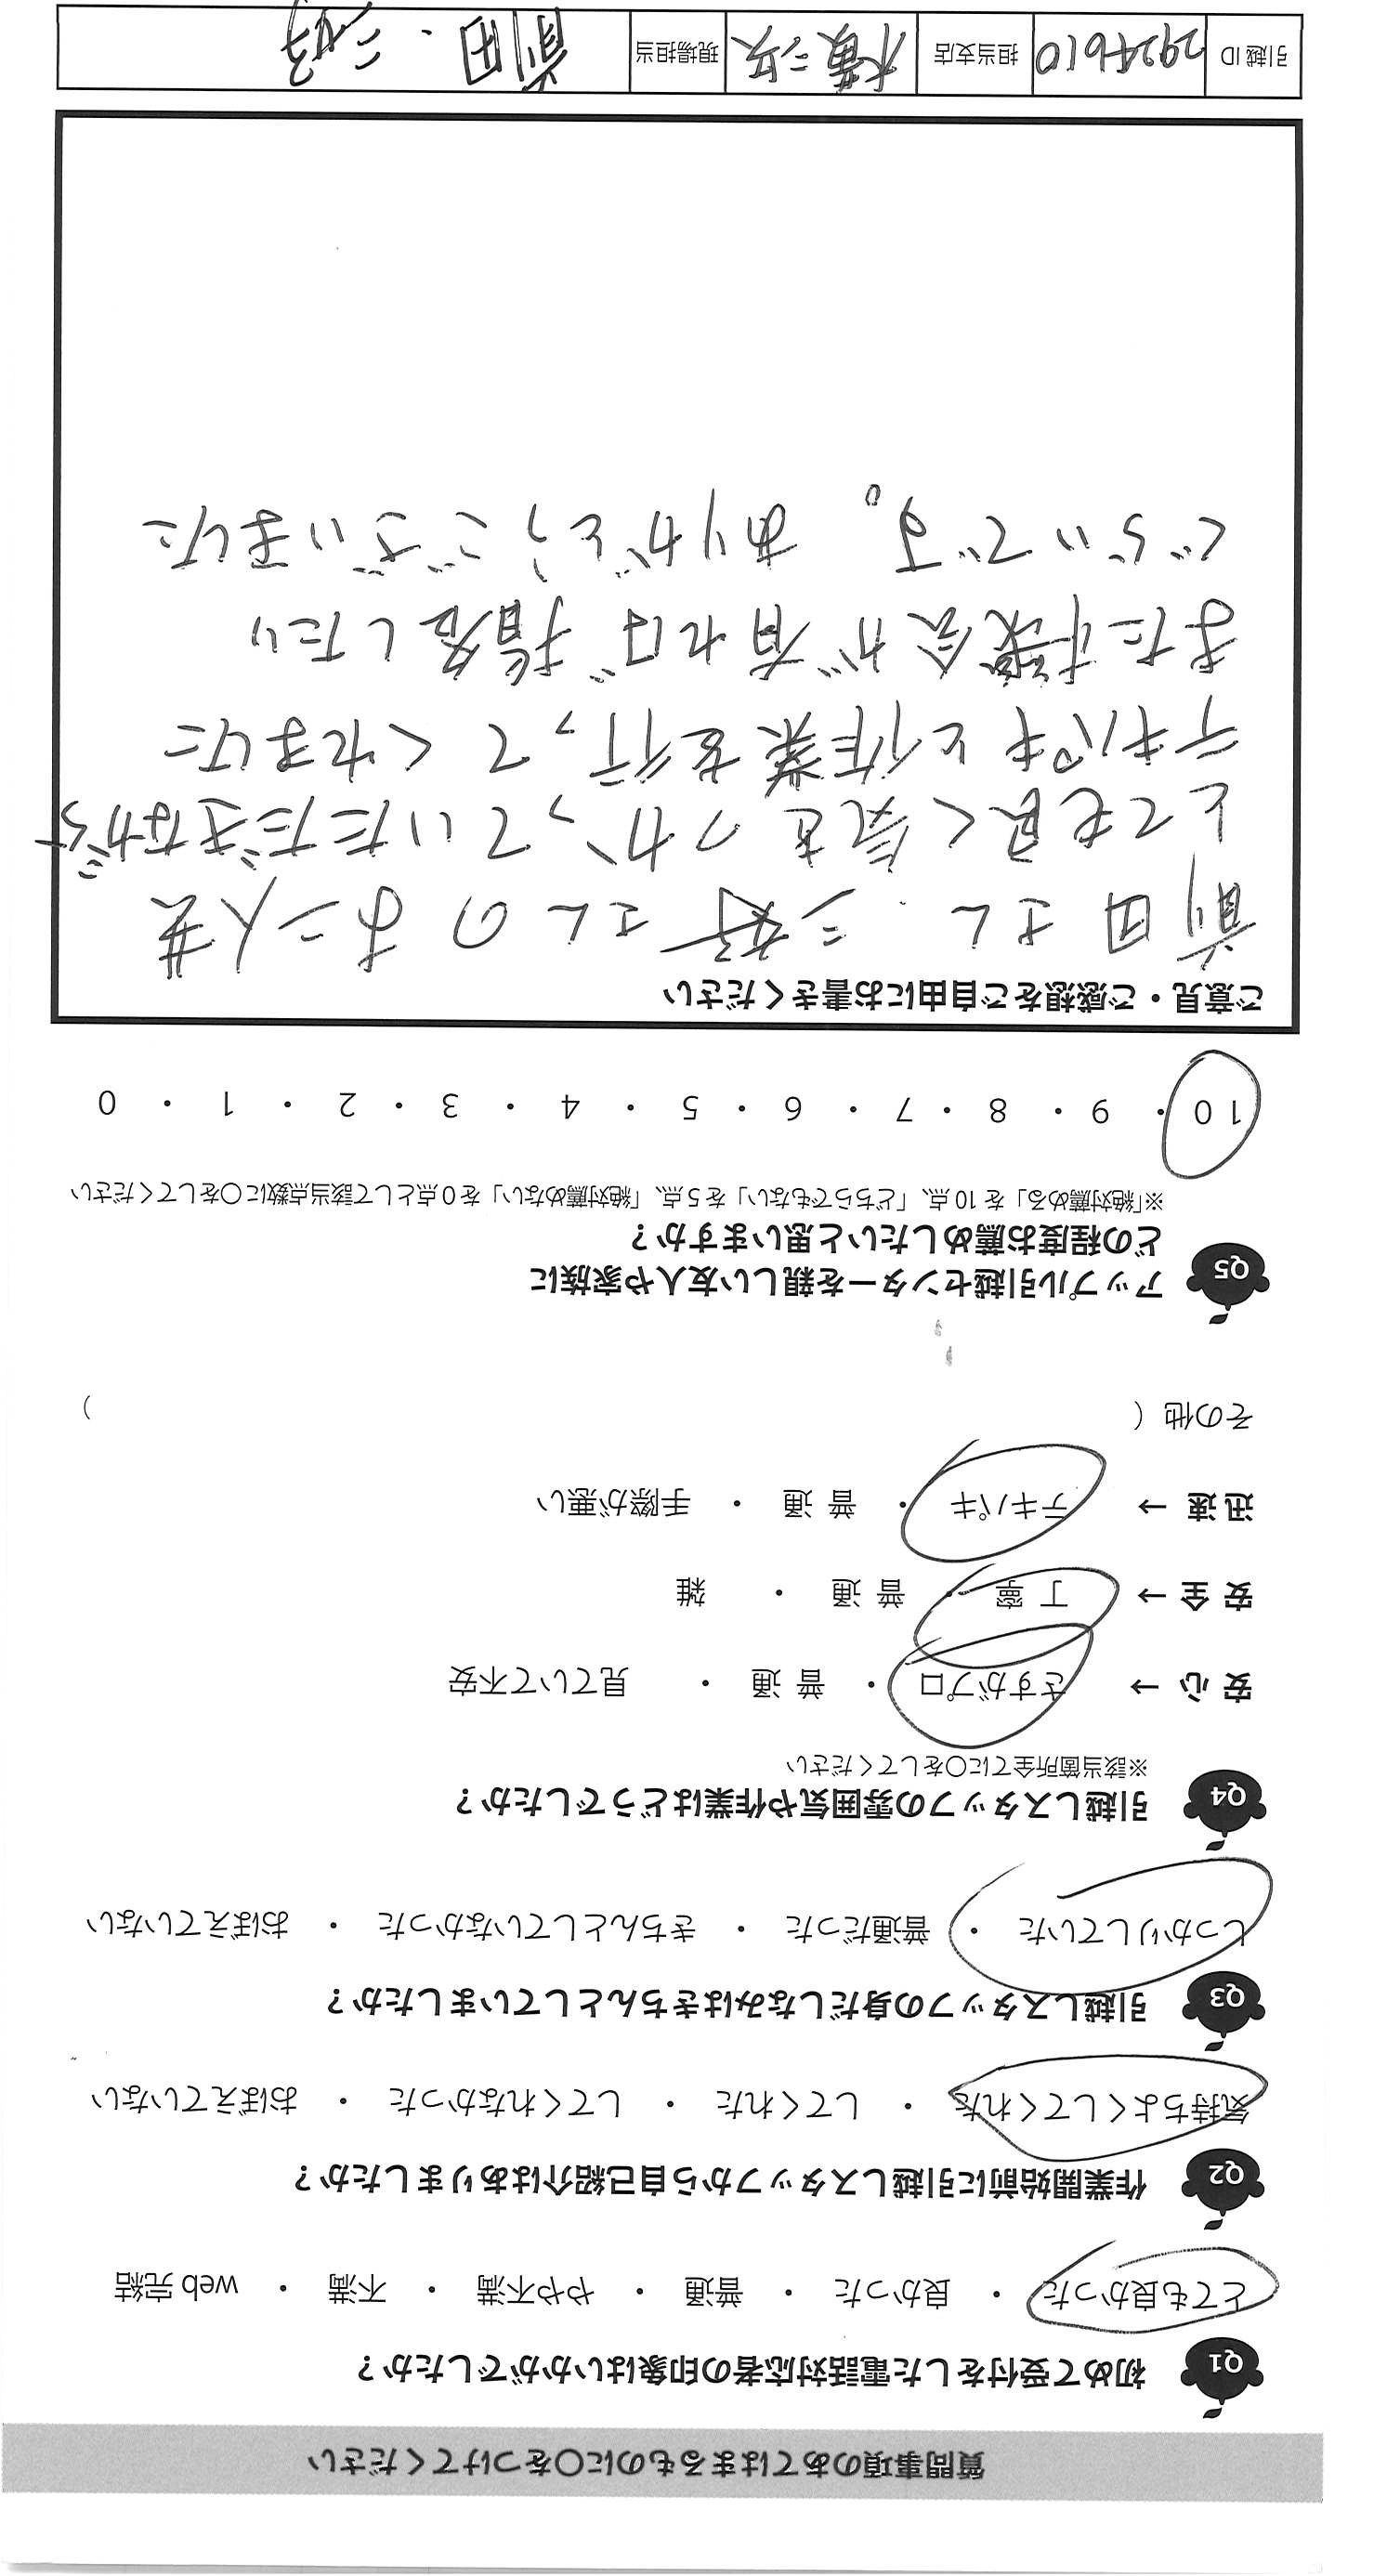 質問事項のあてはまるものに〇をつけてください
Q1 初めて受付をした電話対応者の印象はいかがでしたか？
とても良かった ・ 良かった ・ 普通 ・ やや不満 ・ 不満 ・ web 完結
Q2 作業開始前に引越しスタッフから自己紹介はありましたか？
気持ちよくしてくれた ・ してくれた ・ してくれなかった ・ おぼえていない
Q3 引越しスタッフの身だしなみはきちんとしていましたか？
しっかりしていた ・ 普通だった ・ きちんとしていなかった ・ おぼえていない
Q4 引越しスタッフの雰囲気や作業はどうでしたか？
※該当箇所全てに〇をしてください
安 心 → さすがプロ ・ 普 通 ・ 見ていて不安
安 全 → 丁 寧 ・ 普 通 ・ 雑
迅 速 → テキパキ ・ 普 通 ・ 手際が悪い
その他（ ）
Q5 アップル引越センターを親しい友人や家族に
どの程度お薦めしたいと思いますか？
※「絶対薦める」を 10 点、「どちらでもない」を 5 点、「絶対薦めない」を 0 点として該当点数に〇をしてください
10 ・ 9 ・ 8 ・ 7 ・ 6 ・ 5 ・ 4 ・ 3 ・ 2 ・ 1 ・ 0
ご意見・ご感想をご自由にお書きください
前田さん、三好さんのお二人共
とても良く気をつかっていただきながら
テキパキと作業を行ってくれました
また機会が有れば指名したい
ぐらいです。ありがとうございました
引越 ID 2924610 担当支店 横二失 現場担当 前田・三好